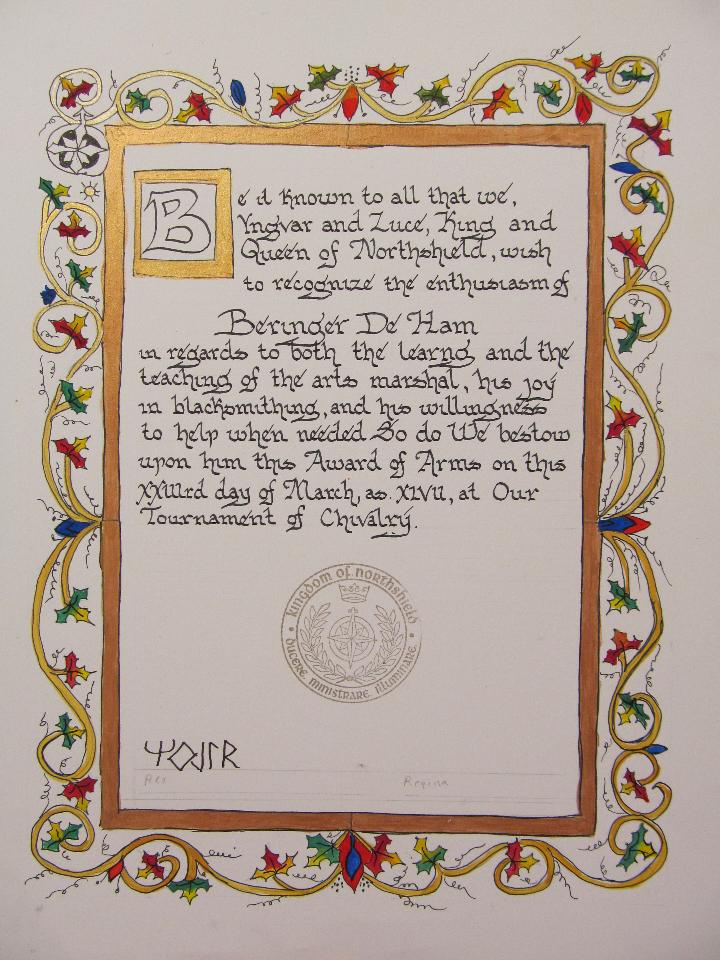 Be it known to all that we,
Yngvar and Luce, King and
Queen of Northshield, wish
to recognize the enthusiasm of
Beringer De Ham
in regards to both the learng and the
teaching of the arts marshal, his joy
in blacksmithing, and his willingness
to help when needed So do We bestow
upon him this Award of Arms on this
XXIIIrd day of March, as. XLVII, at Our
Tournament of Chivalry.
kingdom of northshield
ducere ministrare illuminare
Rex Regina